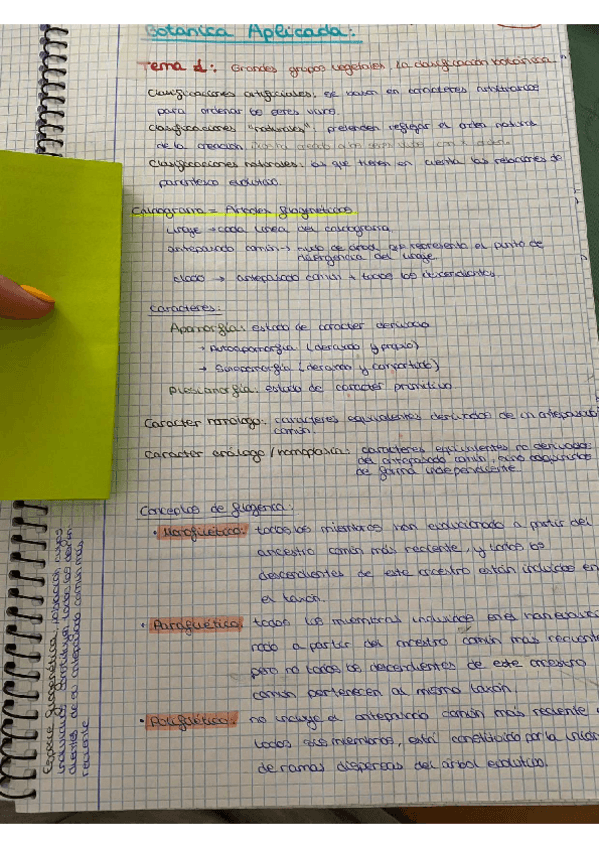 Botánica Aplicada:
Tema 1: Grandes grupos vegetales, la clasificación botánica
Clasificaciones artificiales: se basan en caracteres arbitrarios
para ordenar los seres vivos.
Clasificaciones "naturales": pretenden reflejar el orden natural
de la creación
Clasificaciones naturales: las que tienen en cuenta las relaciones de
parentesco evolutivo.
= Árboles filogenéticos
Linaje → cada línea del cladograma
antepasado común → nudo de árbol que representa el punto de
divergencia del linaje.
clado → antepasado común + todos los descendientes.
Caracteres:
Apomorfía: estado de carácter derivado
→ Autoapomorfía (derivado y propio)
→ Sinapomorfía (derivado y compartido)
Plesiomorfía: estado de carácter primitivo
Caracter homólogo: caracteres equivalentes derivados de un antepasado
común.
Caracter análogo/homoplasia: caracteres equivalentes no derivados
del antepasado común, sino adquiridos
de forma independiente.
Conceptos de filogenia:
• Monofilético: todos los miembros han evolucionado a partir del
ancestro común más reciente, y todos los
descendientes de este ancestro están incluidos en
el taxón.
• Parafilético: todos los miembros incluidos en el han evolucio
nado a partir del ancestro común más reciente
pero no todos los descendientes de este ancestro
común pertenecen al mismo taxón.
• Polifilético: no incluye el antepasado común más reciente
todos sus miembros, está constituido por la unión
de ramas dispersas del árbol evolutivo.
Especie filogenética: población cuyos
individuos constituyen todos los descen
dientes de un antepasado común más
reciente